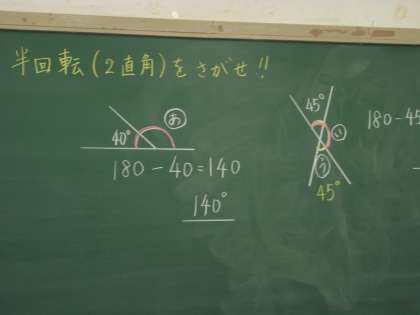 半回転(2直角)をさがせ!!
40° あ
180-40=140
140°
45° い
う
45°
180-45